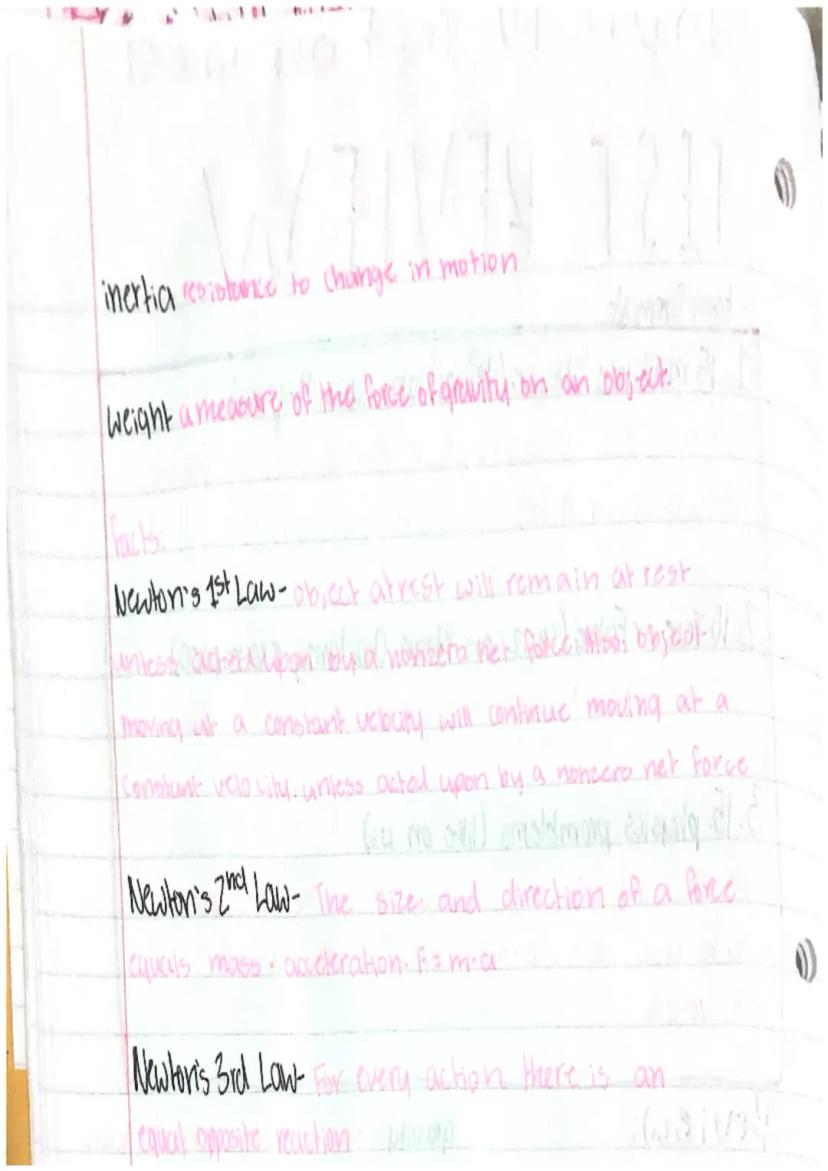 inertia resistance to change in motion
weight a measure of the force of gravity on an object.
facts:
Newton's 1st Law- object at rest will remain at rest
unless acted upon by a nonzero net force. Also, object
moving at a constant velocity will continue moving at a
constant velocity. unless acted upon by a nonzero net force
Newton's 2nd Law- The size and direction of a force
equals mass · acceleration. F = m·a
Newton's 3rd Law- For every action there is an
equal opposite reaction